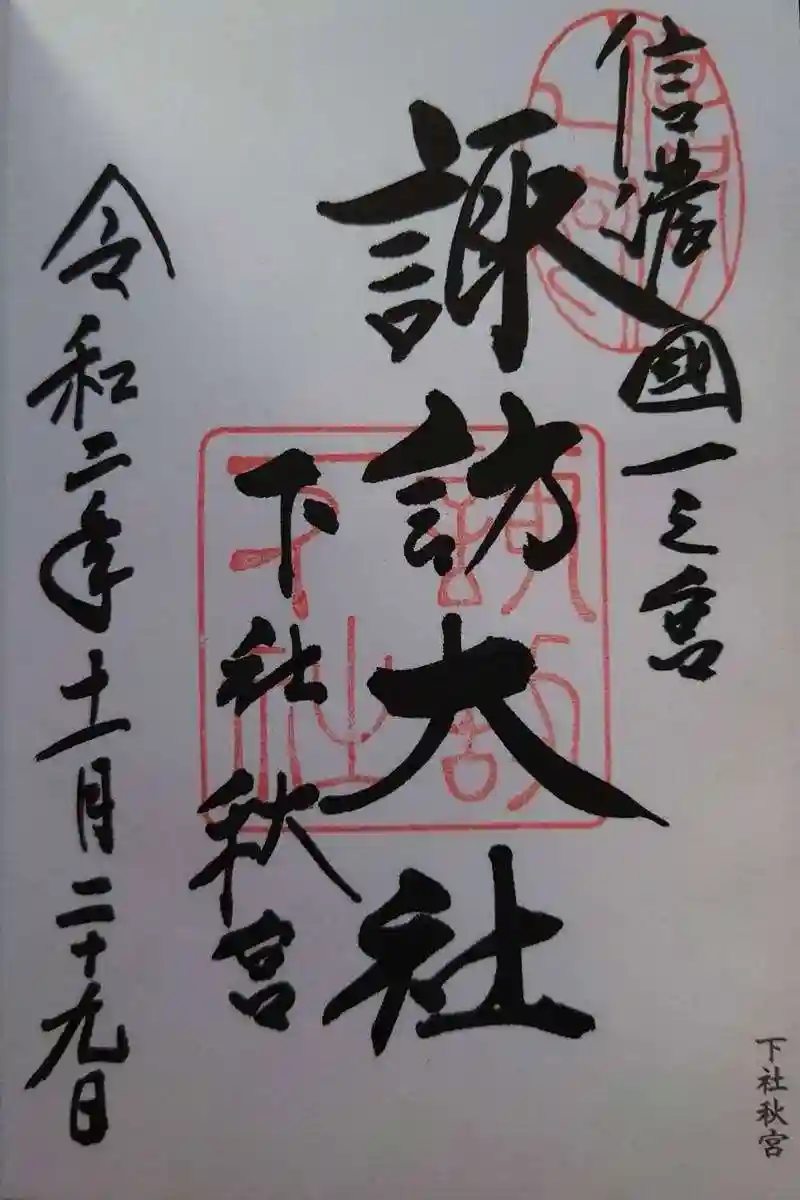 信濃國一之宮
諏訪大社
下社秋宮
令和二年十一月二十九日
下社秋宮